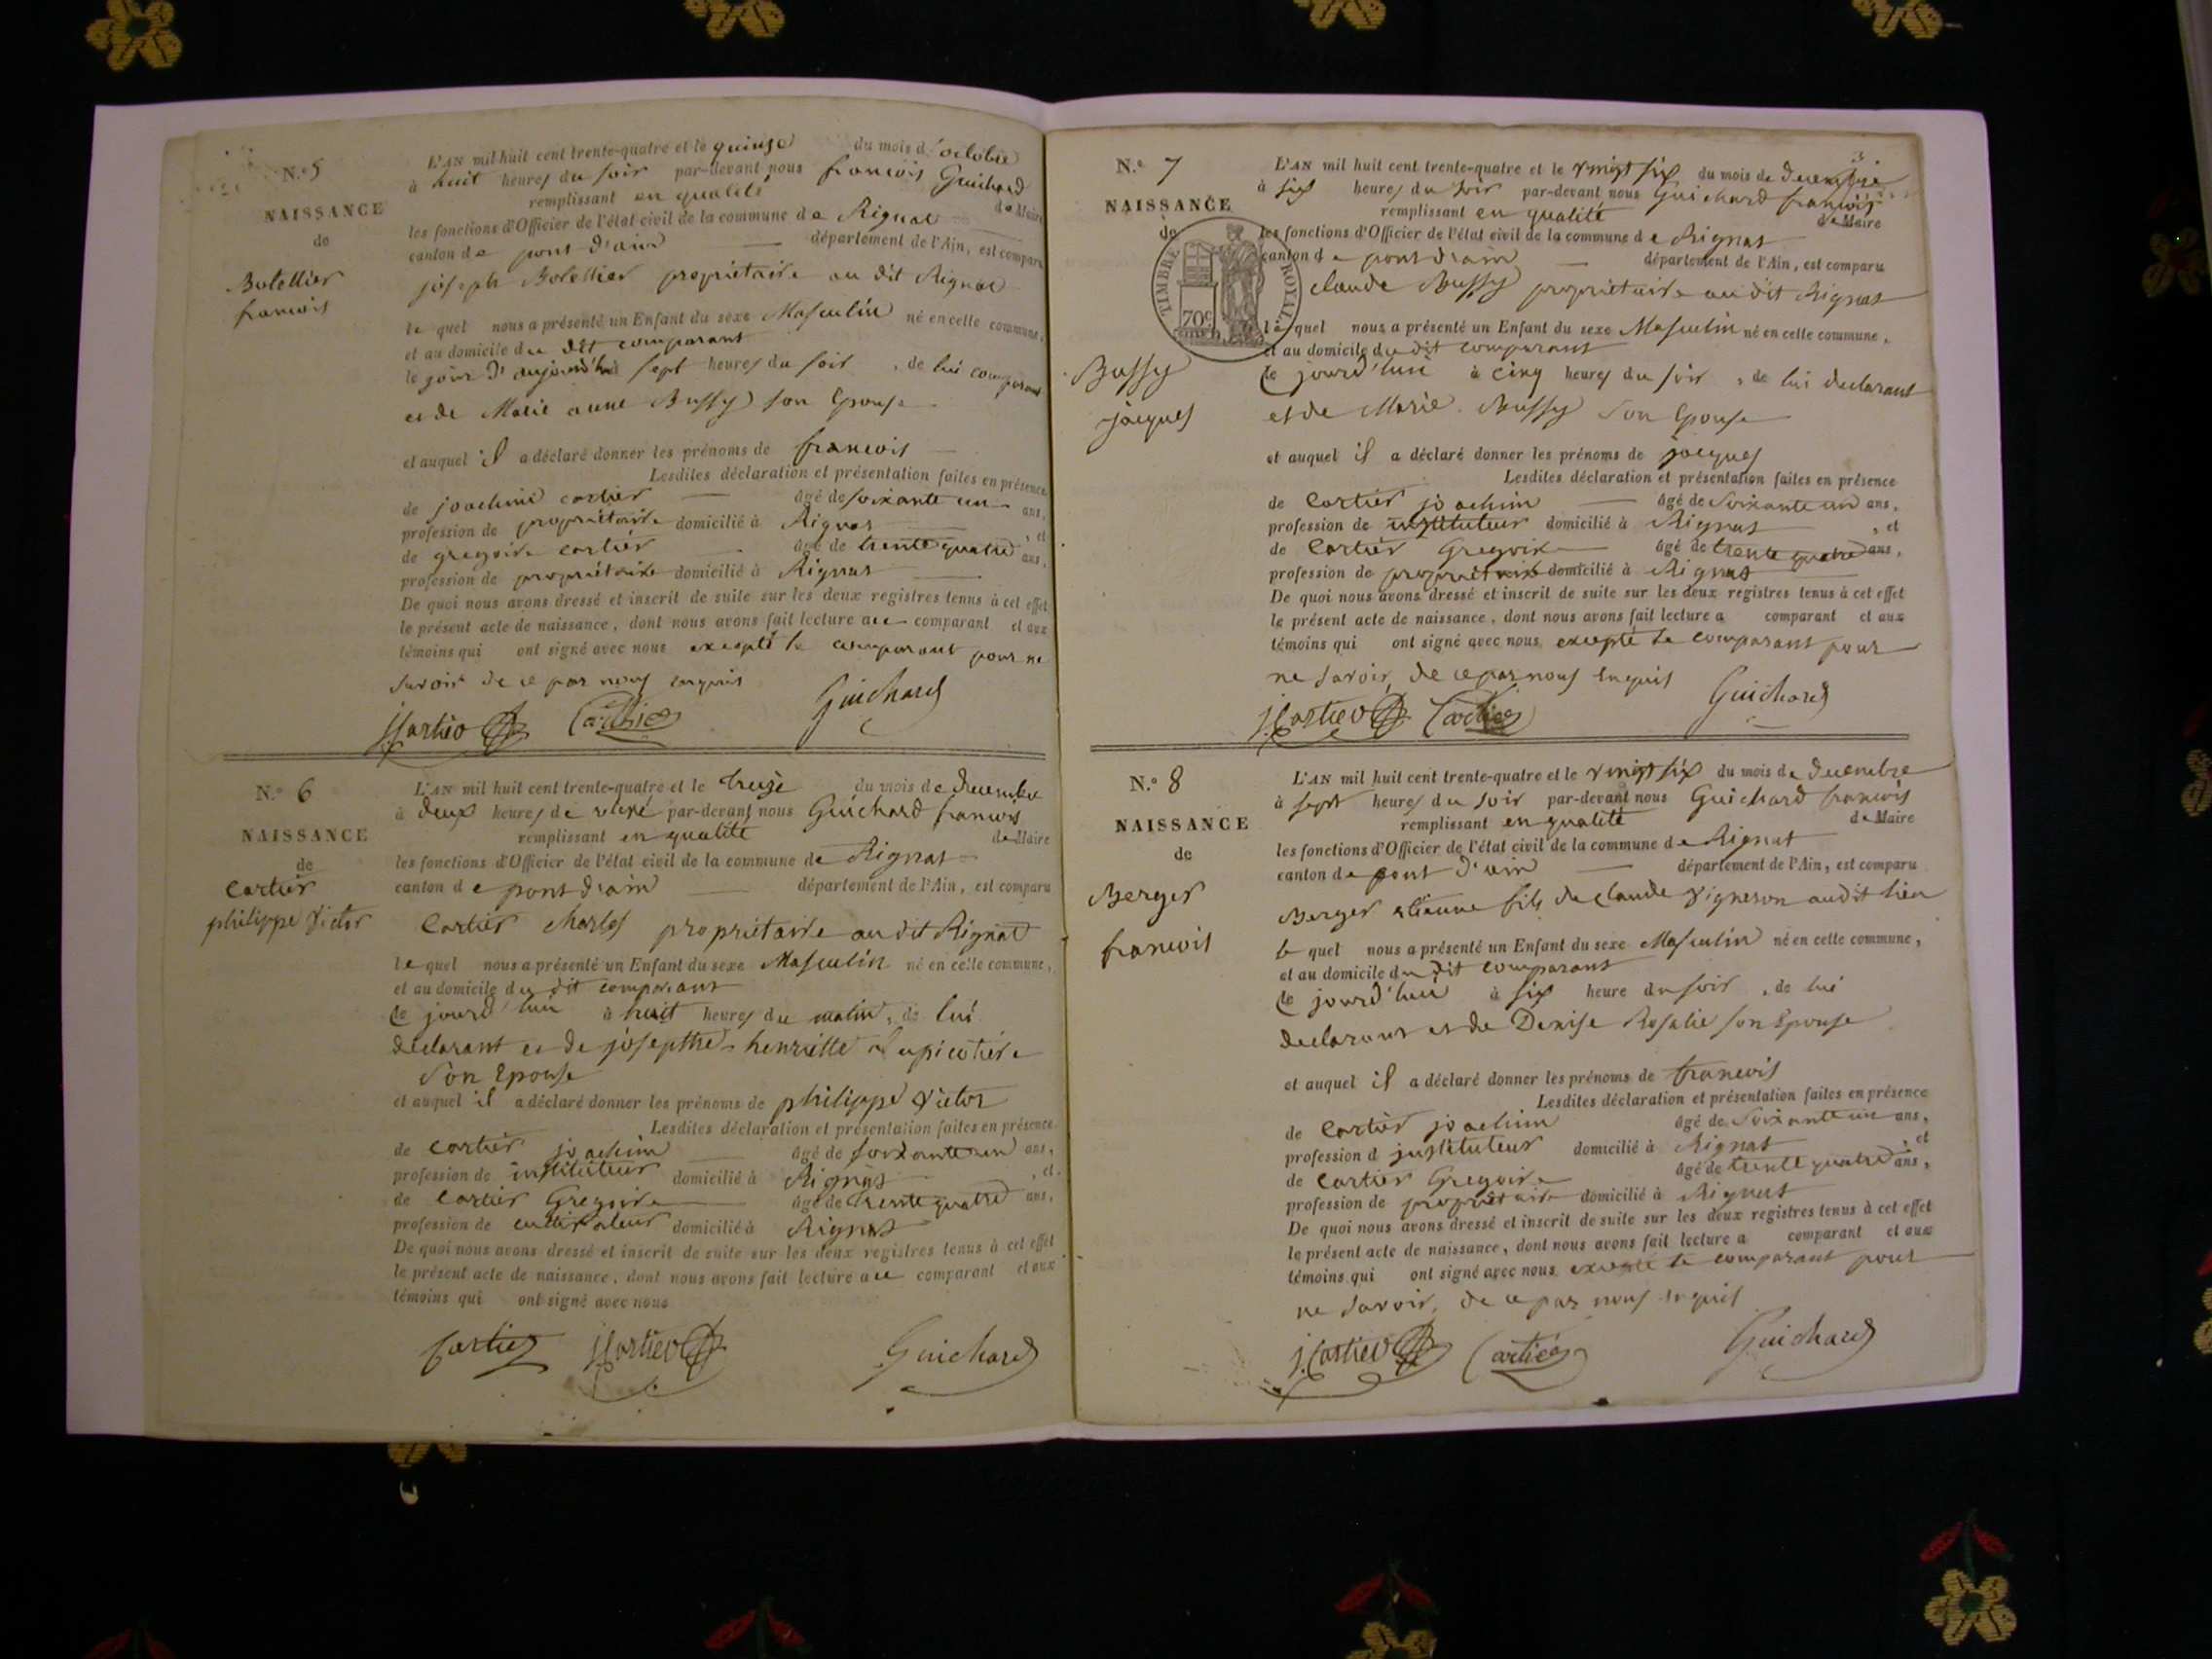 N.° 5
NAISSANCE
de
Botellier
francois
L'AN mil huit cent trente-quatre et le quinze du mois d'octobre
à huit heures du soir par-devant nous francois Guichard
remplissant en qualité de Maire
les fonctions d'Officier de l'état civil de la commune de Rignat
canton de pont d'ain — département de l'Ain, est comparu
joseph Botellier propriétaire au dit Rignat
le quel nous a présenté un Enfant du sexe Masculin né en celle commune,
et au domicile du dit comparant
le jour d'aujourd'hui sept heures du soir, de lui comparant
et de Marie anne Bussy son Epouse
et auquel il a déclaré donner les prénoms de francois
Lesdites déclaration et présentation faites en présence
de joachim cartier — âgé de soixante un ans,
profession de propriétaire domicilié à Rignat, et
de gregoire cartier — âgé de trente quatre ans,
profession de propriétaire domicilié à Rignat
De quoi nous avons dressé et inscrit de suite sur les deux registres tenus à cet effet
le présent acte de naissance, dont nous avons fait lecture au comparant et aux
témoins qui ont signé avec nous excepté le comparant pour ne
savoir de ce par nous enquis
J Cartier Cartier Guichard
N.° 6
NAISSANCE
de
Cartier
philippe Victor
L'AN mil huit cent trente-quatre et le treize du mois de decembre
à deux heures de relevé par-devant nous Guichard francois
remplissant en qualité de Maire
les fonctions d'Officier de l'état civil de la commune de Rignat
canton de pont d'ain — département de l'Ain, est comparu
Cartier Charles propriétaire au dit Rignat
le quel nous a présenté un Enfant du sexe Masculin né en celle commune,
et au domicile du dit comparant
le jourd'hui à huit heures du matin, de lui
déclarant et de josepthe henriette
son Epouse
et auquel il a déclaré donner les prénoms de philippe Victor
Lesdites déclaration et présentation faites en présence
de Cartier joachim — âgé de soixante un ans,
profession de instituteur domicilié à Rignat, et
de Cartier Gregoire âgé de trente quatre ans,
profession de cultivateur domicilié à Rignat
De quoi nous avons dressé et inscrit de suite sur les deux registres tenus à cet effet
le présent acte de naissance, dont nous avons fait lecture au comparant et aux
témoins qui ont signé avec nous
Cartier J Cartier Guichard
3.
N.° 7
NAISSANCE
de
TIMBRE ROYAL
70c
Bussy
jacques
L'AN mil huit cent trente-quatre et le vingt six du mois de decembre
à six heures du soir par-devant nous Guichard francois
remplissant en qualité de Maire
les fonctions d'Officier de l'état civil de la commune de Rignat
canton de pont d'ain — département de l'Ain, est comparu
claude Bussy propriétaire au dit Rignat
le quel nous a présenté un Enfant du sexe Masculin né en celle commune,
et au domicile du dit comparant
le jourd'hui à cinq heures du soir, de lui declarant
et de Marie Bussy son Epouse
et auquel il a déclaré donner les prénoms de jacques
Lesdites déclaration et présentation faites en présence
de Cartier joachim — âgé de soixante un ans,
profession de instituteur domicilié à Rignat, et
de Cartier Gregoire âgé de trente quatre ans,
profession de propriétaire domicilié à Rignat
De quoi nous avons dressé et inscrit de suite sur les deux registres tenus à cet effet
le présent acte de naissance, dont nous avons fait lecture a comparant et aux
témoins qui ont signé avec nous excepté le comparant pour
ne savoir, de ce par nous enquis
J. Cartier Cartier Guichard
N.° 8
NAISSANCE
de
Berger
francois
L'AN mil huit cent trente-quatre et le vingt six du mois de decembre
à sept heures du soir par-devant nous Guichard francois
remplissant en qualité de Maire
les fonctions d'Officier de l'état civil de la commune de Rignat
canton de pont d'ain — département de l'Ain, est comparu
Berger etienne fils de claude vigneron audit lieu
le quel nous a présenté un Enfant du sexe Masculin né en celle commune,
et au domicile du dit comparant
le jourd'hui à six heure du soir, de lui
declarant et de Denise Rosalie son Epouse
et auquel il a déclaré donner les prénoms de francois
Lesdites déclaration et présentation faites en présence
de Cartier joachim âgé de soixante un ans,
profession d instituteur domicilié à Rignat, et
de Cartier Gregoire âgé de trente quatre ans,
profession de propriétaire domicilié à Rignat
De quoi nous avons dressé et inscrit de suite sur les deux registres tenus à cet effet
le présent acte de naissance, dont nous avons fait lecture a comparant et aux
témoins qui ont signé avec nous excepté le comparant pour
ne savoir, de ce par nous enquis
J. Cartier Cartier Guichard